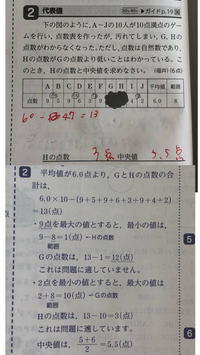 2 代表値
▶ガイドp.19
下の図のように, A〜Jの10人が10点満点のゲー
ムを行い, 点数表を作ったが, 汚れてしまい, G, Hの
点数がわからなくなった。ただし, 点数は自然数であり,
Hの点数がGの点数より低いことはわかっている。こ
のとき, Hの点数と中央値を求めなさい。
A B C D E F G H I J 平均値 範囲
点数 9 5 9 6 3 9 4 2 6.0 8
60 - 47 = 13
Hの点数 3点 中央値 5.5点
2 平均値が6.0点より, GとHの点数の合
計は,
6.0×10−(9+5+9+6+3+9+4+2)
=13(点)
・9点を最大の値とすると, 最小の値は,
9−8=1(点)←Hの点数
範囲
Gの点数は, 13−1=12(点)
これは問題に適していません。
・2点を最小の値とすると, 最大の値は
2+8=10(点)←Gの点数
範囲
Hの点数は, 13−10=3(点)
これは問題に適しています。
中央値は, 5+6/2=5.5(点)
5
6